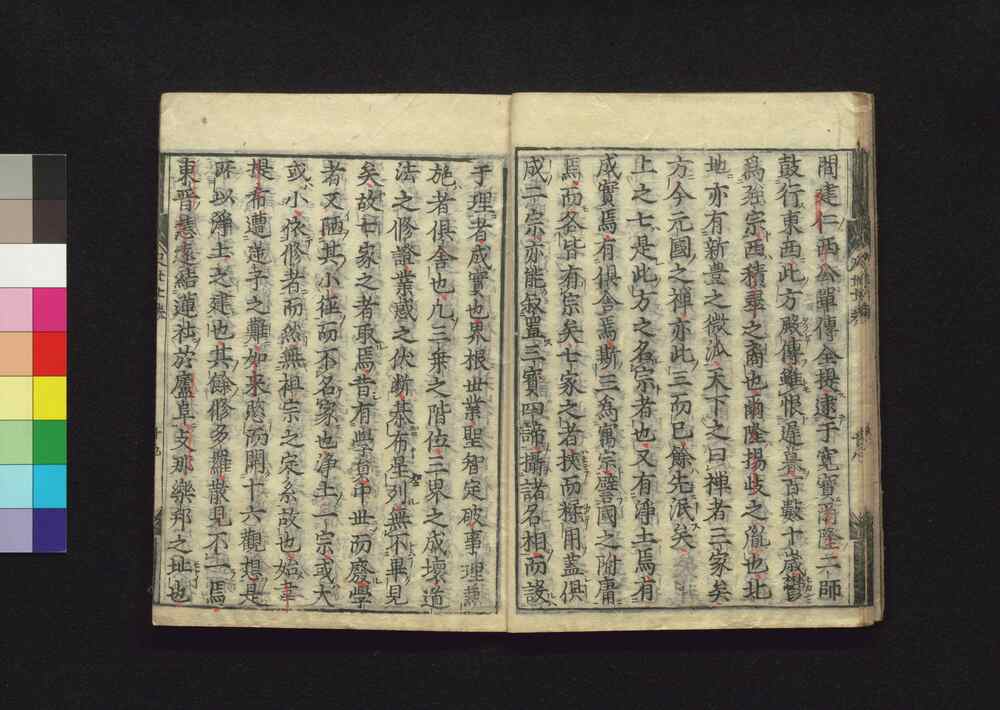 間建仁西公單傳全提逮于寛寶爾隆二師
鼓行東西此方嚴傳雖恨遲暮百數十歳鬱
爲強宗西積翠之裔也爾隆揚岐之胤也北
地亦有新豊之微沠天下之曰禪者三家矣
方今元國之禪亦此三而已餘先泯矣
上之七是此方之名宗者也又有淨土焉有
成實焉有倶舎焉斯三爲寓宗譬國之附庸
焉而各皆有宗矣七家之者挾而稱用蓋倶
成二宗亦能叙置三寶四諦攝諸名相而
于理者成實也界根世業聖智定破事理兼
施者倶舎也凡三乗之階位二界之成壞道
法之修證業惑之伏斷棊布星列無不畢見
矣故七家之者取焉昔有學 中世而廢學
者又陋其小徑而不名家也淨土一宗或大
或小依修者而然無祖宗之定系故也始韋
提希遭逆子之難如來愍而開十六觀想是
所以淨土之建也其餘修多羅散見不一焉
東晋慧遠結蓮社於廬阜支那樂邦之址也